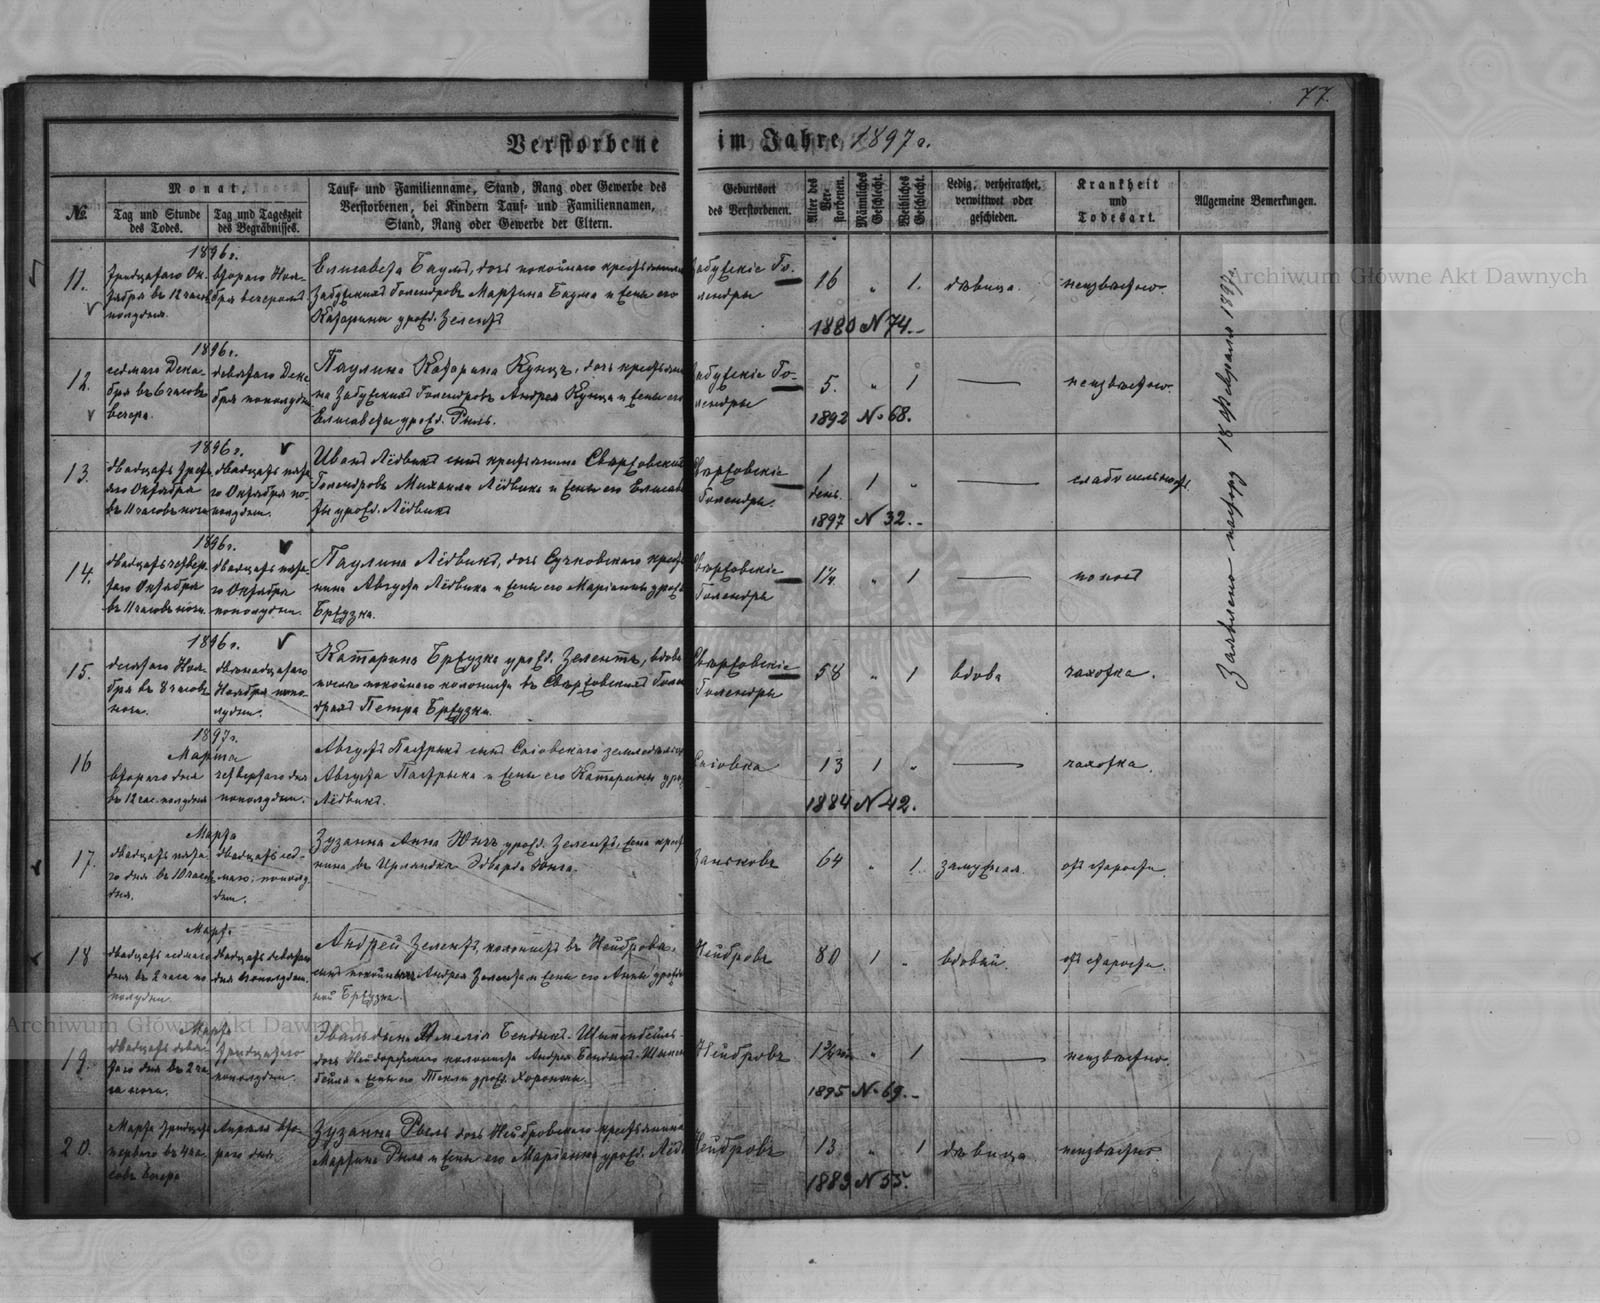 77.
Verstorbene im Jahre 1897 г.
№
Monat.
Tag und Stunde des Todes.
Tag und Tageszeit des Begräbnisses.
Tauf- und Familienname, Stand, Rang oder Gewerbe des
Verstorbenen, bei Kindern Tauf- und Familiennamen,
Stand, Rang oder Gewerbe der Eltern.
Geburtsort
des Verstorbenen.
Alter des Verstorbenen.
Männliches Geschlecht.
Weibliches Geschlecht.
Ledig, verheirathet,
verwittwet oder
geschieden.
Krankheit
und
Todesart.
Allgemeine Bemerkungen.
Archiwum Główne Akt Dawnych
11.
1896 г.
тридцатаго Ок-
тября въ 12 часов
полудня.
втораго Ноя-
бря вечеромъ
Елисавета Баумъ, дочь покойнаго крестьянина
Забужскихъ Голендровъ Мартина Баума и жены его
Катарины урожд. Зелентъ
Забужскіе Го-
лендры
16 „ 1. дѣвица. неизвѣстно.
1880 N 74.
12.
1896 г.
седьмаго Дека-
бря въ 6 часовъ
вечера.
девятаго Дека-
бря пополудни
Паулина Катарина Кунцъ, дочь крестьяни-
на Забужскихъ Голендровъ Андрея Кунца и жены его
Елисаветы урожд. Рыль.
Забужскіе Го-
лендры
5. „ 1 — неизвѣстно.
1892 N 68.
13.
1896 г.
двадцать треть-
яго Октября
въ 11 часовъ ночи
двадцать пята-
го Октября по-
полудни.
Иванъ Лёдвихъ сынъ крестьянина Свержовскихъ
Голендровъ Михаила Лёдвиха и жены его Елиса-
веты урожд. Лёдвихъ
Свержовскіе
Голендры.
1 день. 1 „ — слабосильность
1897 N 32.
14.
1896 г.
двадцать четвер-
таго Октября
въ 11 часовъ ночи
двадцать пята-
го Октября
пополудни.
Паулина Лёдвихъ, дочь Сучковскаго крестья-
нина Августа Лёдвиха и жены его Маріанны урожд.
Брżузка.
Свержовскіе
Голендры
„ 1 — поносъ
15.
1896 г.
десятаго Ноя-
бря въ 8 часовъ
ночи.
двѣнадцатаго
Ноября попо-
лудни.
Катарина урожд. Зелентъ, вдова
послѣ покойнаго колониста въ Свержовскихъ Голен-
драхъ Петра
Свержовскіе
Голендры
58 „ 1 вдова чахотка.
16
1897 г.
Марта
втораго дня
въ 12 час. полудня
четвертаго дня
пополудни.
Августъ Пастрыкъ сынъ Сліовскаго земледѣльца
Августа Пастрыка и жены его Катарины урожд.
Лёдвихъ.
13 1 „ — чахотка.
1884 N 42.
17.
Марта
двадцать пята-
го дня въ 10 часовъ
дня.
двадцать седь-
маго пополу-
дни.
Зузанна Анна Юнгъ урожд. Зелентъ, жена кресть-
нина въ Эдварда Юнга.
64 „ 1. замужняя. отъ старости.
18
Марта
двадцать седьмаго
дня въ 2 часа по
полудни.
двадцать девятаго
дня пополудни.
Андрей Зелентъ, колонистъ въ Нейбровѣ,
сынъ покойныхъ Андрея Зелента и жены его Анны урожден-
ной
Нейбровъ
80 1 „ вдовый. отъ старости.
19.
Марта
двадцать девя-
таго дня въ 2 ча-
са ночи.
тридцатаго
пополудни.
Эвальдына Амелія Бендыкъ-
дочь колониста Андрея Бендыкъ-
и жены его Текли урожд.
Нейбровъ
„ 1 — неизвѣстно.
1895 N 69.
20.
Марта тридцать
перваго въ 4 ча-
совъ вечера
Апрѣля вто-
раго дня
Зузанна Рыль дочь Нейбровскаго крестьянина
Мартина Рыля и жены его Маріанны урожд.
Нейбровъ
13 „ 1 дѣвица неизвѣстно.
1883 N 55.
Заявлено пастору 18 февраля 1897 г.
Archiwum Główne Akt Dawnych